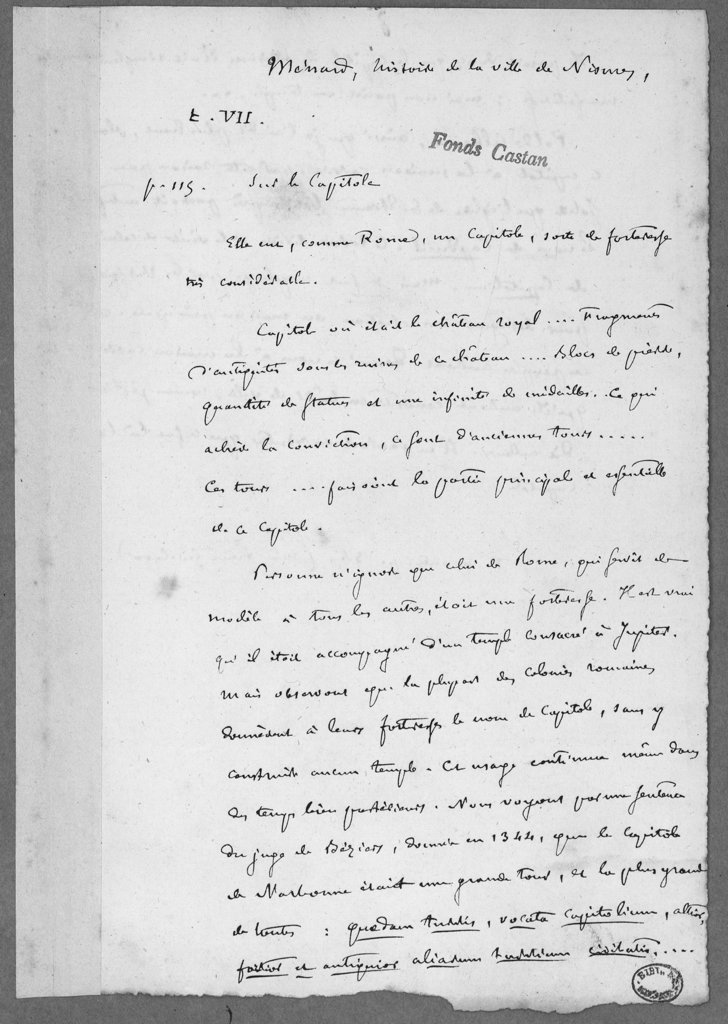 Ménard, histoire de la ville de Nismes,
t. VII.
Fonds Castan
p. 115. Sur le Capitole
Elle eut, comme Rome, un Capitole, sorte de forteresse
très considérable.
Capitole où était le château royal .... Fragments
d'antiquités sous les ruines de ce château .... Blocs de pierre,
quantité de statues et une infinité de médailles. Ce qui
achève la conviction, ce sont d'anciennes tours .....
Ces tours .... faisoient la partie principale et essentielle
de ce Capitole.
Personne n'ignore que celui de Rome, qui servit de
modèle à tous les autres, étoit une forteresse. Il est vrai
qu'il étoit accompagné d'un temple consacré à Jupiter.
Mais observons que la plupart des colonies romaines
donnèrent à leurs forteresses le nom de Capitole, sans y
construire aucun temple. Cet usage continua même dans
des temps bien postérieurs. Nous voyons par une sentence
du juge de Béziers, donnée en 1344, que le Capitole
de Narbonne étoit une grande tour, et la plus grande
de toutes : quædam turris, vocata capitolium, altior,
fortior et antiquior aliarum turrium civitatis.....